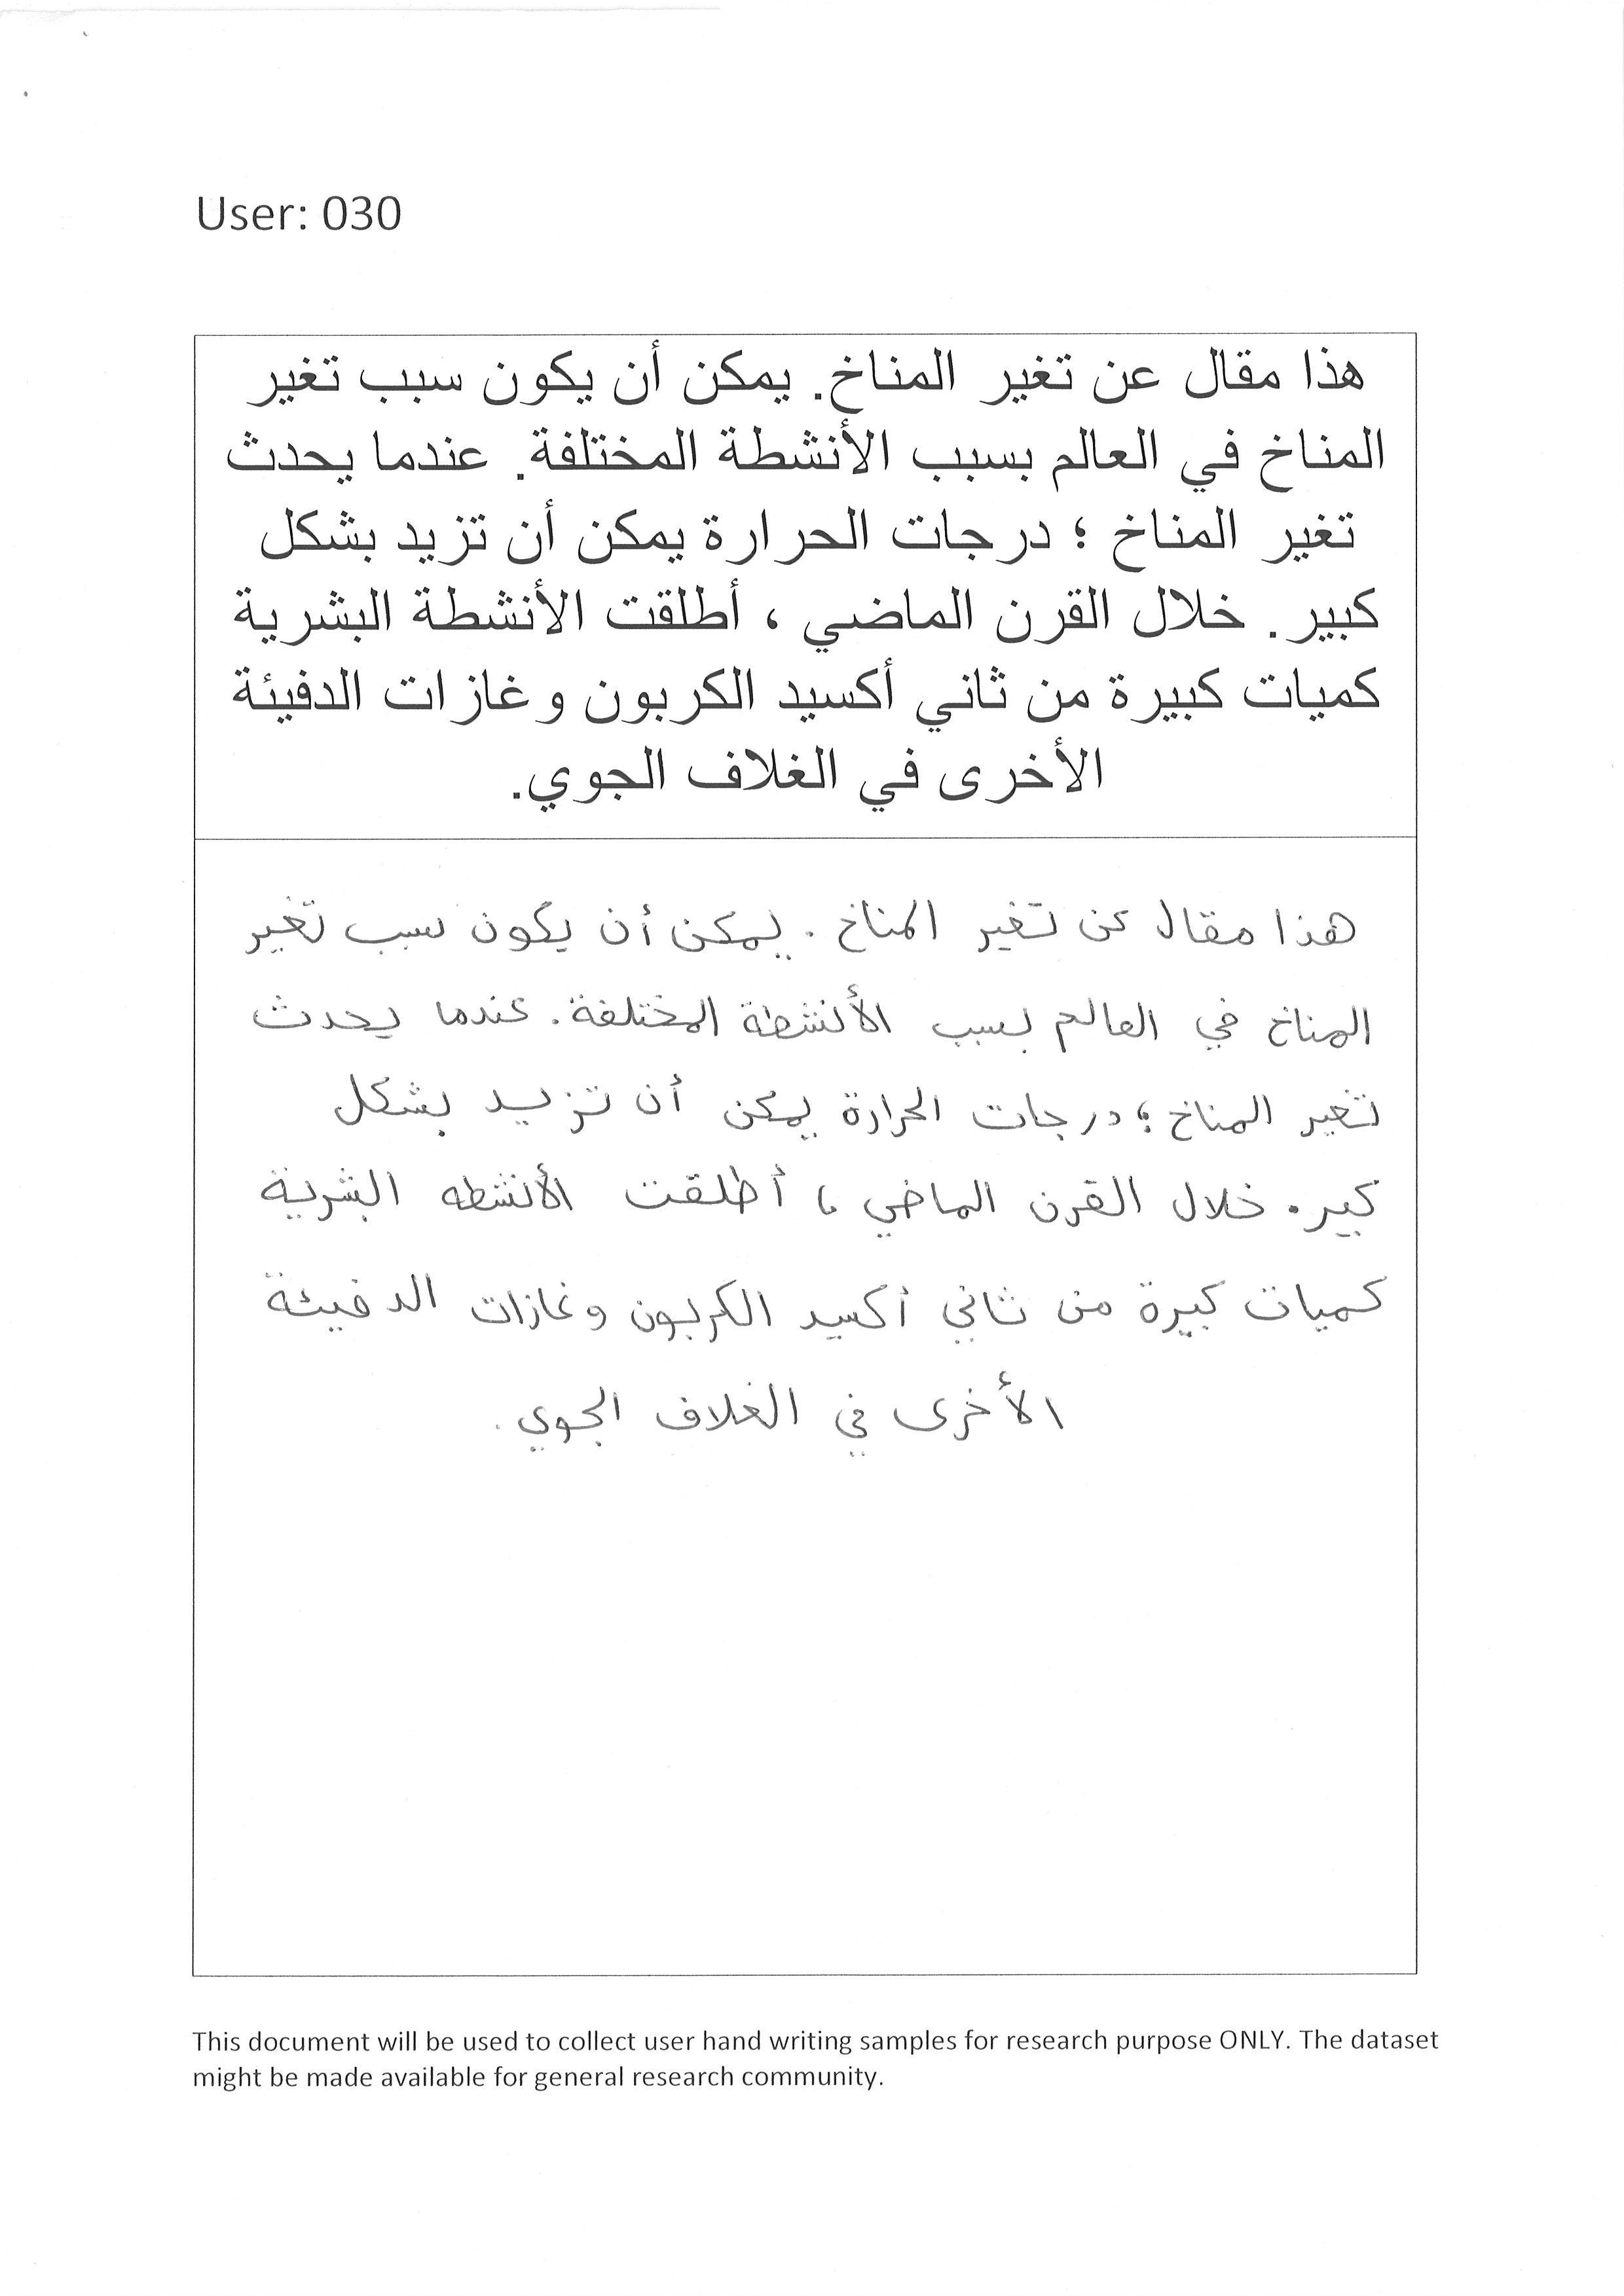 User: 030
هذا مقال عن تغير المناخ. يمكن أن يكون سبب تغير
المناخ في العالم بسبب الأنشطة المختلفة. عندما يحدث
تغير المناخ ؛ درجات الحرارة يمكن أن تزيد بشكل
كبير. خلال القرن الماضي ، أطلقت الأنشطة البشرية
كميات كبيرة من ثاني أكسيد الكربون وغازات الدفيئة
الأخرى في الغلاف الجوي.
هذا مقال عن تغير المناخ. يمكن أن يكون سبب تغير
المناخ في العالم بسبب الأنشطة المختلفة. عندما يحدث
تغير المناخ ؛ درجات الحرارة يمكن أن تزيد بشكل
كبير. خلال القرن الماضي ، أطلقت الأنشطه البشرية
كميات كبيرة من ثاني أكسيد الكربون وغازات الدفيئة
الأخرى في الغلاف الجوي.
This document will be used to collect user hand writing samples for research purpose ONLY. The dataset
might be made available for general research community.